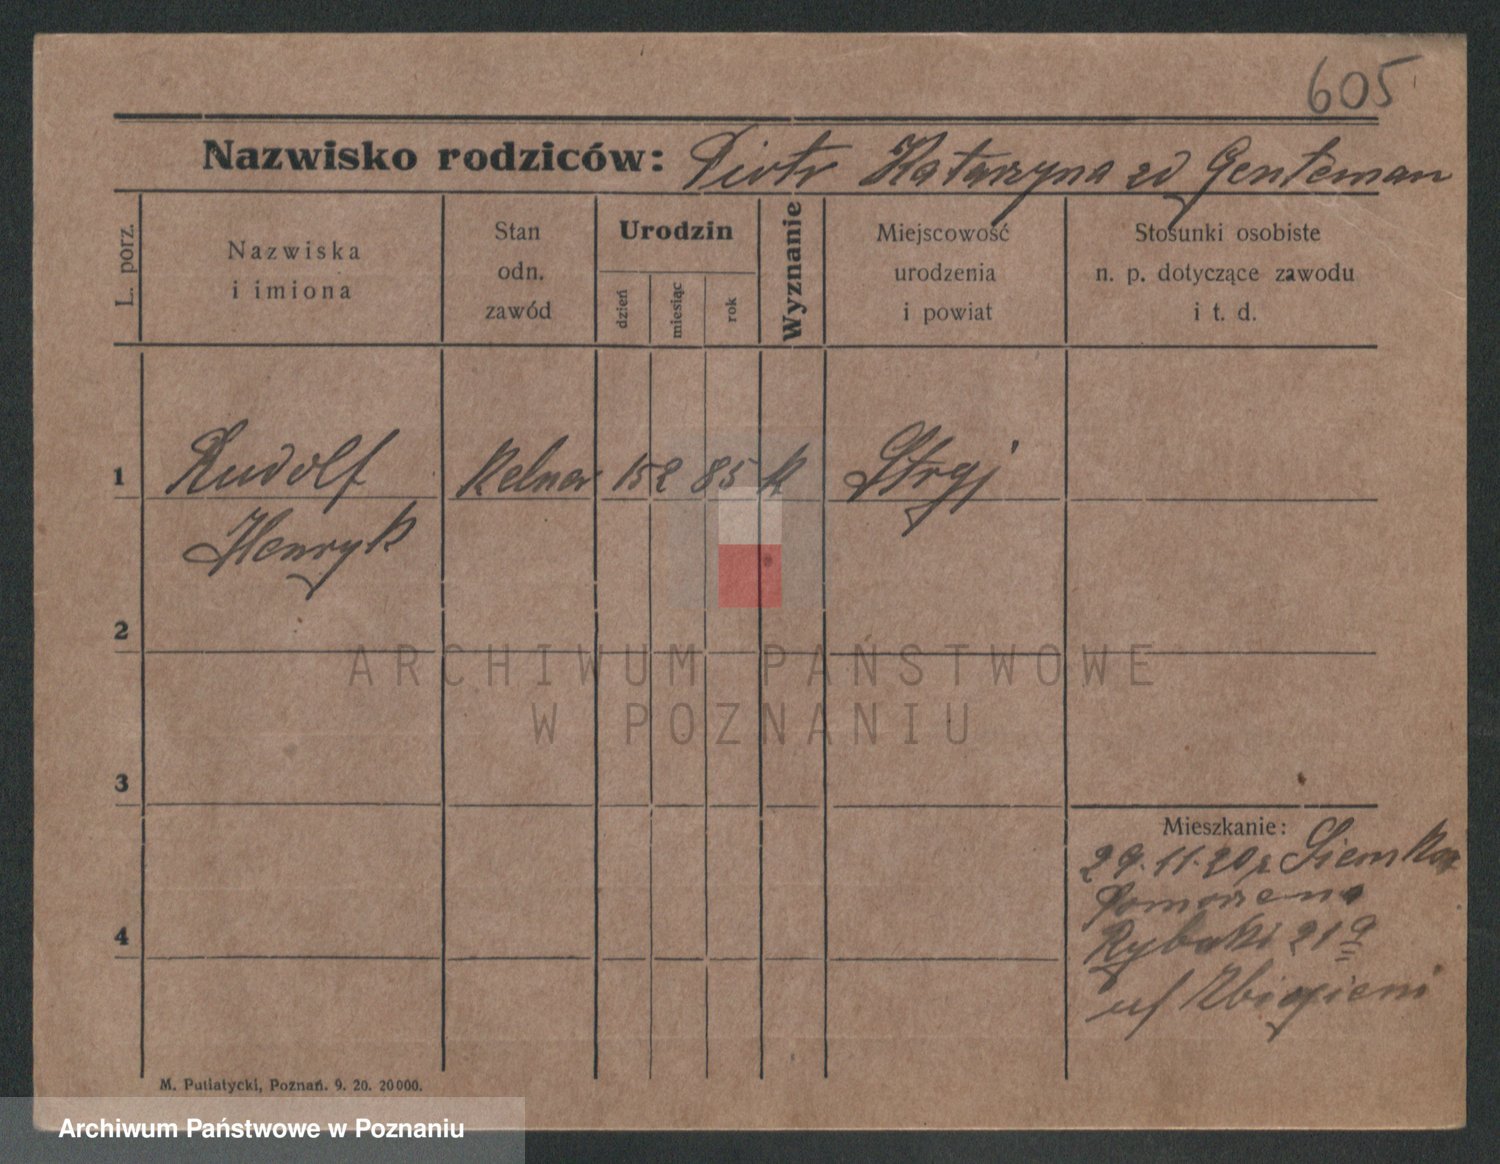 605
Nazwisko rodziców: Piotr Katarzyna zd Genteman
L. porz.
Nazwiska
i imiona
Stan
odn.
zawód
Urodzin
dzień
miesiąc
rok
Wyznanie
Miejscowość
urodzenia
i powiat
Stosunki osobiste
n. p. dotyczące zawodu
i t. d.
1 Rudolf Kelner 15 2 85 k Stryj
Henryk
2
ARCHIWUM PAŃSTWOWE
W POZNANIU
3
Mieszkanie:
29.11.20 r
4
Rybaki 21
M. Putiatycki, Poznań. 9. 20. 20000.
Archiwum Państwowe w Poznaniu